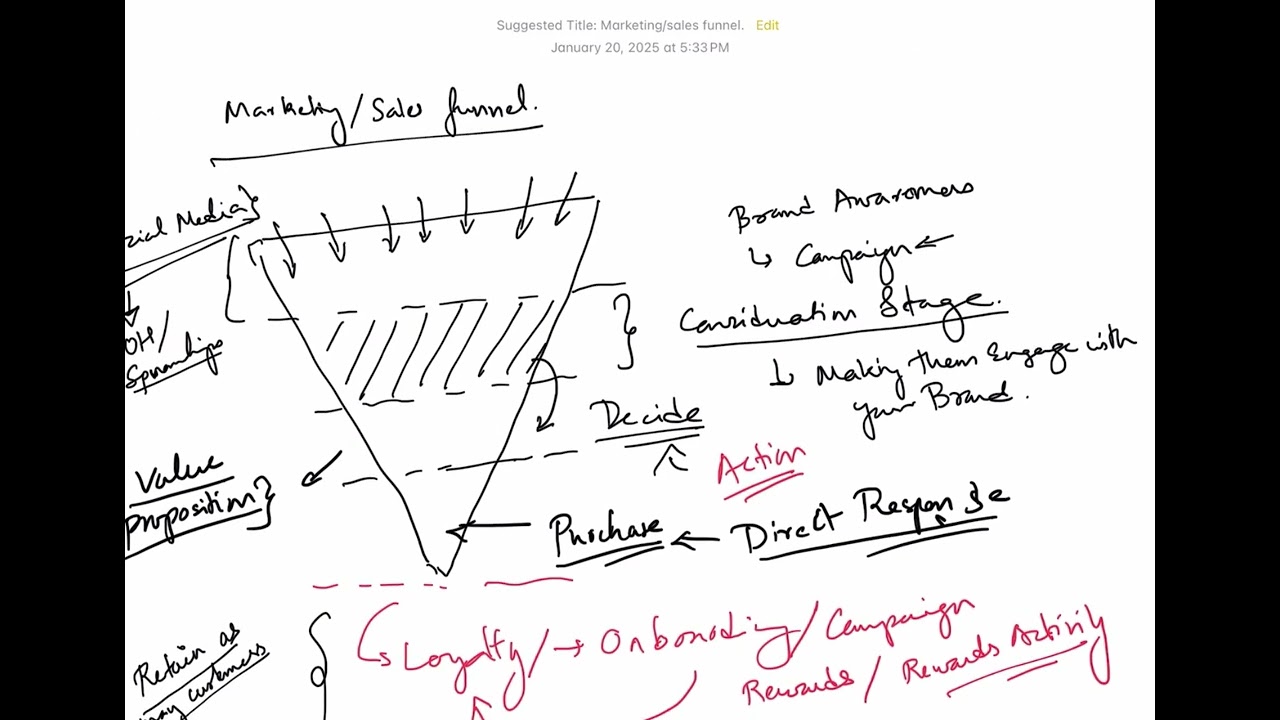 Suggested Title: Marketing/sales funnel. Edit
January 20, 2025 at 5:33 PM
Marketing/Sales funnel.
cial Media}
OH/
Sponorships
Brand Awareness
↳ Campaign ←
Consideration Stage.
↳ Making them Engage with
your Brand.
Decide
Action
Value
proposition}
Purchase ← Direct Response
Loyalty/→ Onboarding/Campaign
Rewards/Rewards Activity
Retain as
many customers